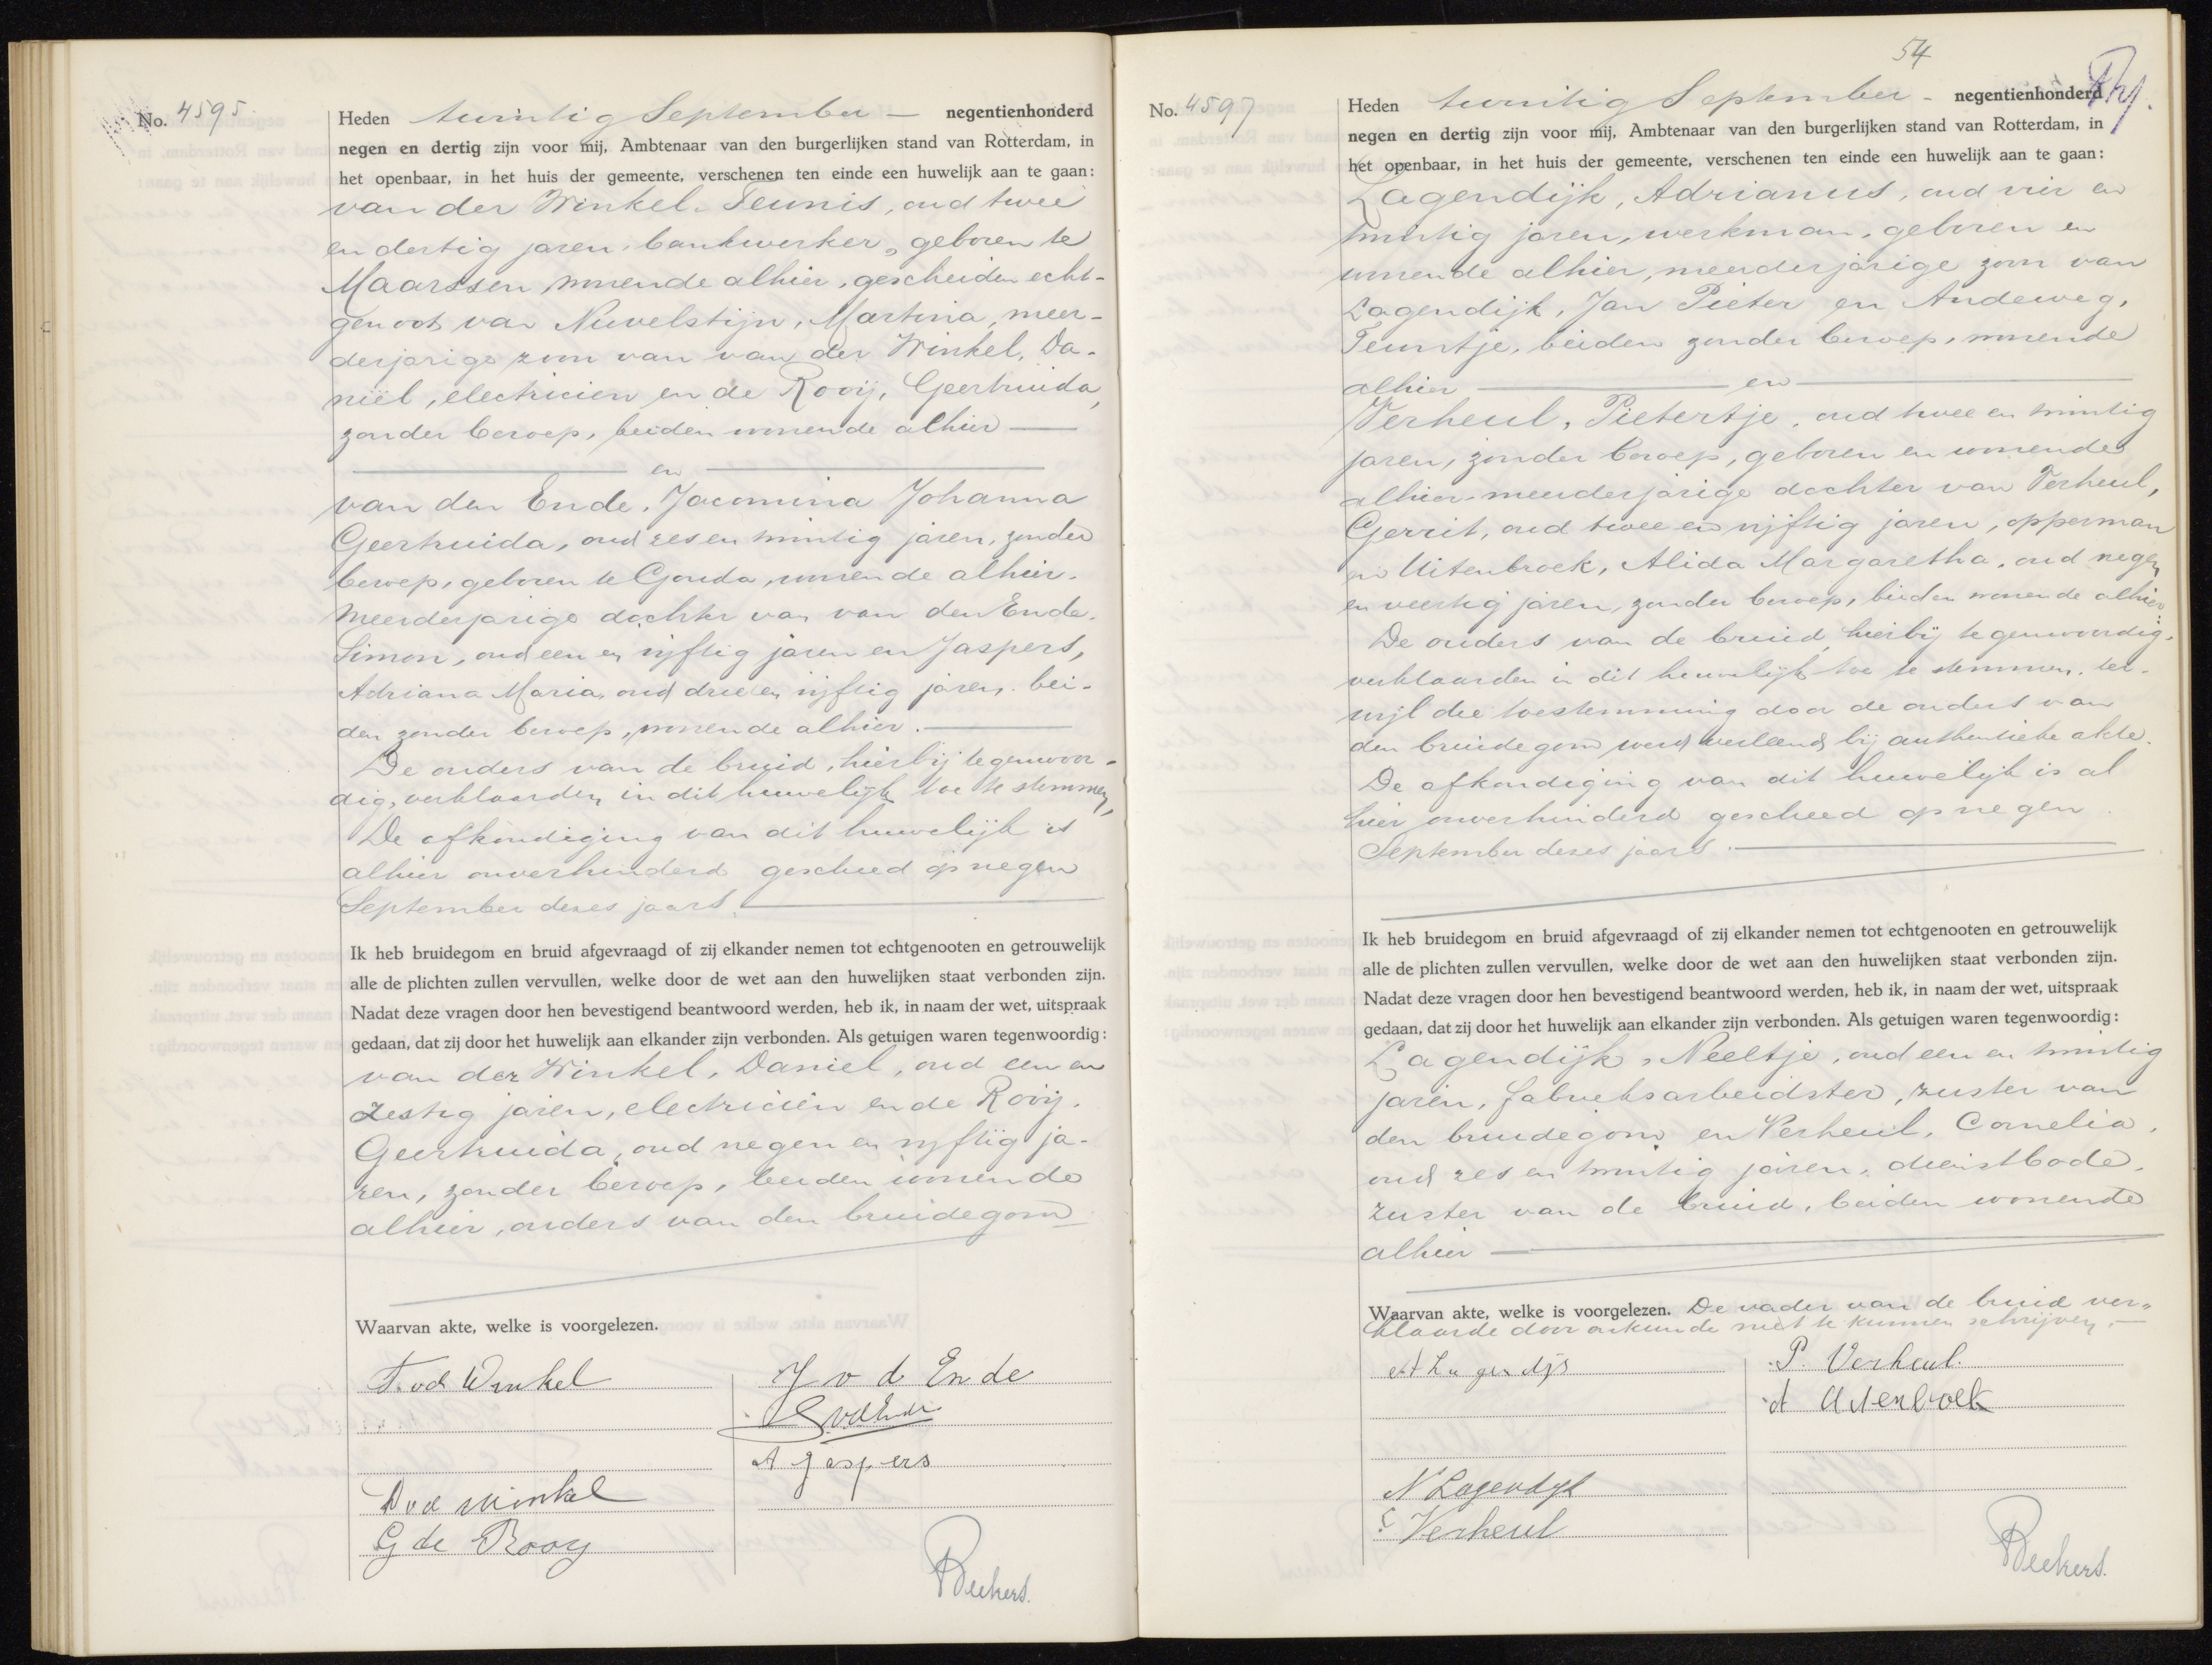 No. 4595.
Heden twintig September — negentienhonderd
negen en dertig zijn voor mij, Ambtenaar van den burgerlijken stand van Rotterdam, in
het openbaar, in het huis der gemeente, verschenen ten einde een huwelijk aan te gaan:
van der Winkel, Teunis, oud twee
en dertig jaren, bankwerker, geboren te
Maarssen, wonende alhier, gescheiden echt-
genoot van Nuvelstijn, Martina, meer-
derjarige zoon van van der Winkel, Da-
niël, electricien en de Rooij, Geertruida,
zonder beroep, beiden wonende alhier —
— en —
van den Ende, Jacomina Johanna
Geertruida, oud zes en twintig jaren, zonder
beroep, geboren te Gouda, wonende alhier,
meerderjarige dochter van van den Ende,
Simon, oud een en vijftig jaren en Jaspers,
Adriana Maria, oud drie en vijftig jaren, bei-
den zonder beroep, wonende alhier. —
De ouders van de bruid, hierbij tegenwoor-
dig, verklaarden in dit huwelijk toe te stemmen,
De afkondiging van dit huwelijk is
alhier onverhinderd geschied op negen
September dezes jaars. —
Ik heb bruidegom en bruid afgevraagd of zij elkander nemen tot echtgenooten en getrouwelijk
alle de plichten zullen vervullen, welke door de wet aan den huwelijken staat verbonden zijn.
Nadat deze vragen door hen bevestigend beantwoord werden, heb ik, in naam der wet, uitspraak
gedaan, dat zij door het huwelijk aan elkander zijn verbonden. Als getuigen waren tegenwoordig:
van der Winkel, Daniel, oud een en
zestig jaren, electricien en de Rooij,
Geertruida, oud negen en vijftig ja-
ren, zonder beroep, beiden wonende
alhier, ouders van den bruidegom
Waarvan akte, welke is voorgelezen.
T. vd Winkel
J v d Ende
S vd Ende
A Jaspers
D vd Winkel
G de Rooy
Beekers.
54
No. 4597
Heden twintig September - negentienhonderd
negen en dertig zijn voor mij, Ambtenaar van den burgerlijken stand van Rotterdam, in
het openbaar, in het huis der gemeente, verschenen ten einde een huwelijk aan te gaan:
Lagendijk, Adrianus, oud vier en
twintig jaren, werkman, geboren en
wonende alhier, meerderjarige zoon van
Lagendijk, Jan Pieter en Andeweg,
Teuntje, beiden zonder beroep, wonende
alhier — en —
Verheul, Pietertje, oud twee en twintig
jaren, zonder beroep, geboren en wonende
alhier meerderjarige dochter van Verheul,
Gerrit, oud twee en vijftig jaren, opperman
en Uitenbroek, Alida Margaretha, oud negen
en veertig jaren, zonder beroep, beiden wonende alhier
De ouders van de bruid, hierbij tegenwoordig,
verklaarden in dit huwelijk toe te stemmen, ter-
wijl die toestemming door de ouders van
den bruidegom werd verleend bij authentieke akte.
De afkondiging van dit huwelijk is al
hier onverhinderd geschied op negen
September dezes jaars. —
Ik heb bruidegom en bruid afgevraagd of zij elkander nemen tot echtgenooten en getrouwelijk
alle de plichten zullen vervullen, welke door de wet aan den huwelijken staat verbonden zijn.
Nadat deze vragen door hen bevestigend beantwoord werden, heb ik, in naam der wet, uitspraak
gedaan, dat zij door het huwelijk aan elkander zijn verbonden. Als getuigen waren tegenwoordig:
Lagendijk, Neeltje, oud een en twintig
jaren, fabrieksarbeidster, zuster van
den bruidegom en Verheul, Cornelia,
oud zes en twintig jaren, dienstbode,
zuster van de bruid, beiden wonende
alhier —
Waarvan akte, welke is voorgelezen. De vader van de bruid ver-
klaarde door onkunde niet te kunnen schrijven. —
A Lagendijk
P. Verheul.
A Uitenbroek
N Lagendijk
C Verheul
Beekers.